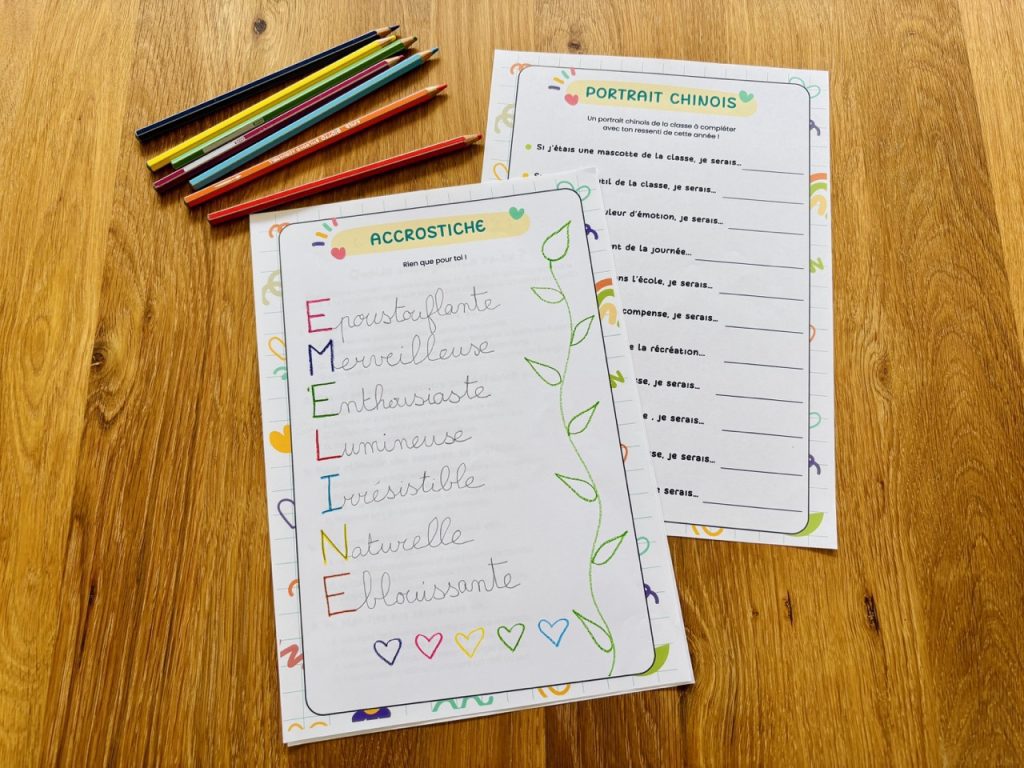 PORTRAIT CHINOIS
Un portrait chinois de la classe à compléter
avec ton ressenti de cette année !
Si j'étais une mascotte de la classe, je serais...
til de la classe, je serais...
uleur d'émotion, je serais...
nt de la journée...
ns l'école, je serais...
compense, je serais...
e la récréation...
se, je serais...
e , je serais...
se, je serais...
e serais...
ACCROSTICHE
Rien que pour toi !
Epoustouflante
Merveilleuse
Enthousiaste
Lumineuse
Irrésistible
Naturelle
Eblouissante